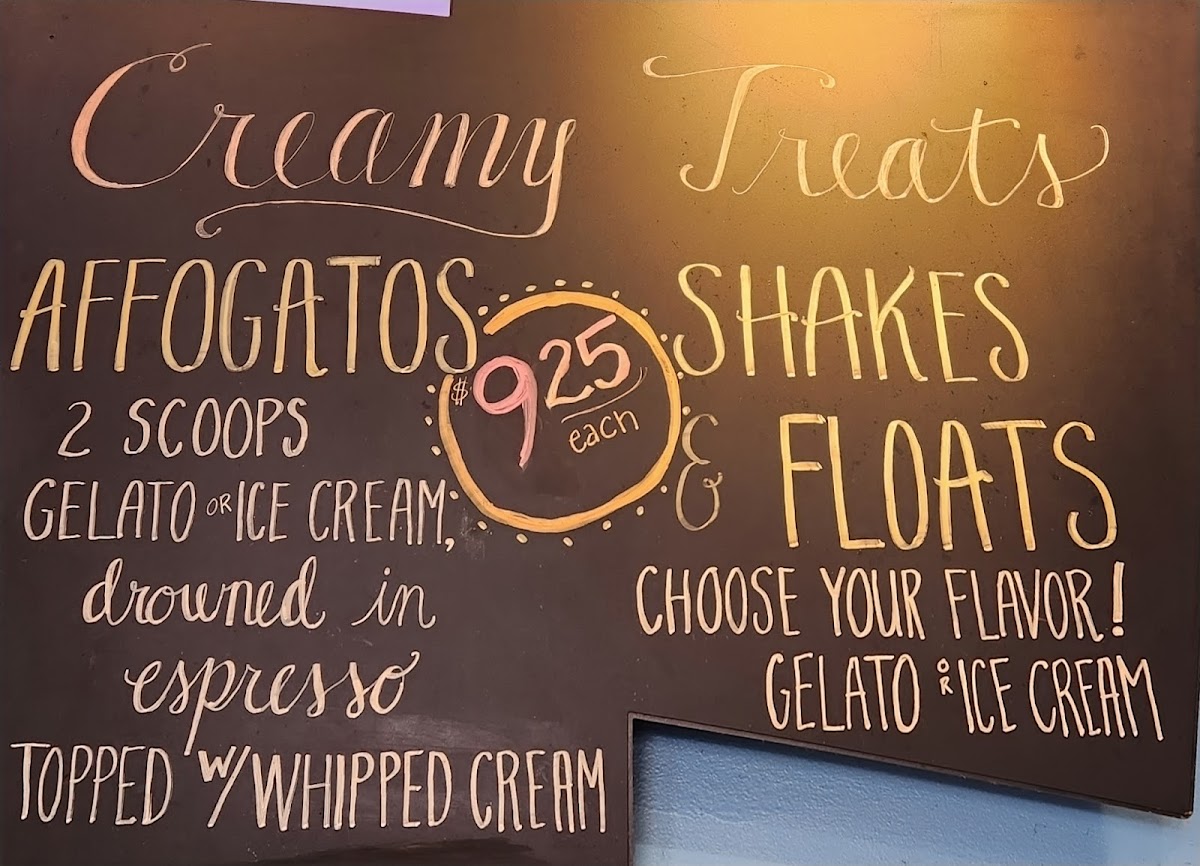 Creamy Treats
AFFOGATOS
2 SCOOPS
GELATO OR ICE CREAM,
drowned in
espresso
TOPPED W/ WHIPPED CREAM
$9.25
each
SHAKES
& FLOATS
CHOOSE YOUR FLAVOR!
GELATO OR ICE CREAM